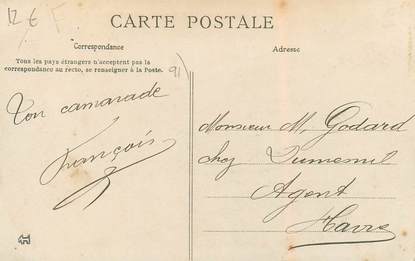 12 € F
CARTE POSTALE
Correspondance
Adresse
Tous les pays étrangers n'acceptent pas la
correspondance au recto, se renseigner à la Poste.
91
Ton camarade
François
Monsieur M, Godard
chez Dumesnil
Agent
Havre